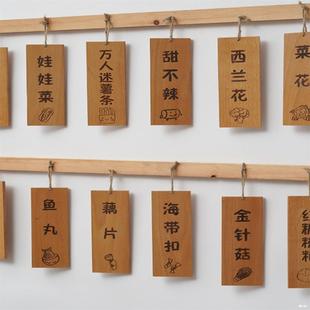 娃娃菜
万人迷薯条
甜不辣
西兰花
菜花
鱼丸
藕片
海带扣
金针菇
红糖糍粑